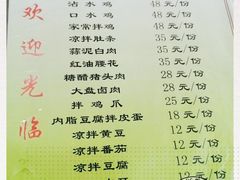 欢迎光临
沾水鸡 48 元/份
口水鸡 48 元/份
家常拌鸡 48 元/份
凉拌肚条 35 元/份
蒜泥白肉 35 元/份
红油腰花 35 元/份
糖醋猪头肉 28 元/份
大盘卤肉 28 元/份
拌鸡爪 25 元/份
内脂豆腐拌皮蛋 18 元/份
凉拌黄豆 12 元/份
凉拌番茄 12 元/份
凉拌豆腐 12 元/份
12 元/份